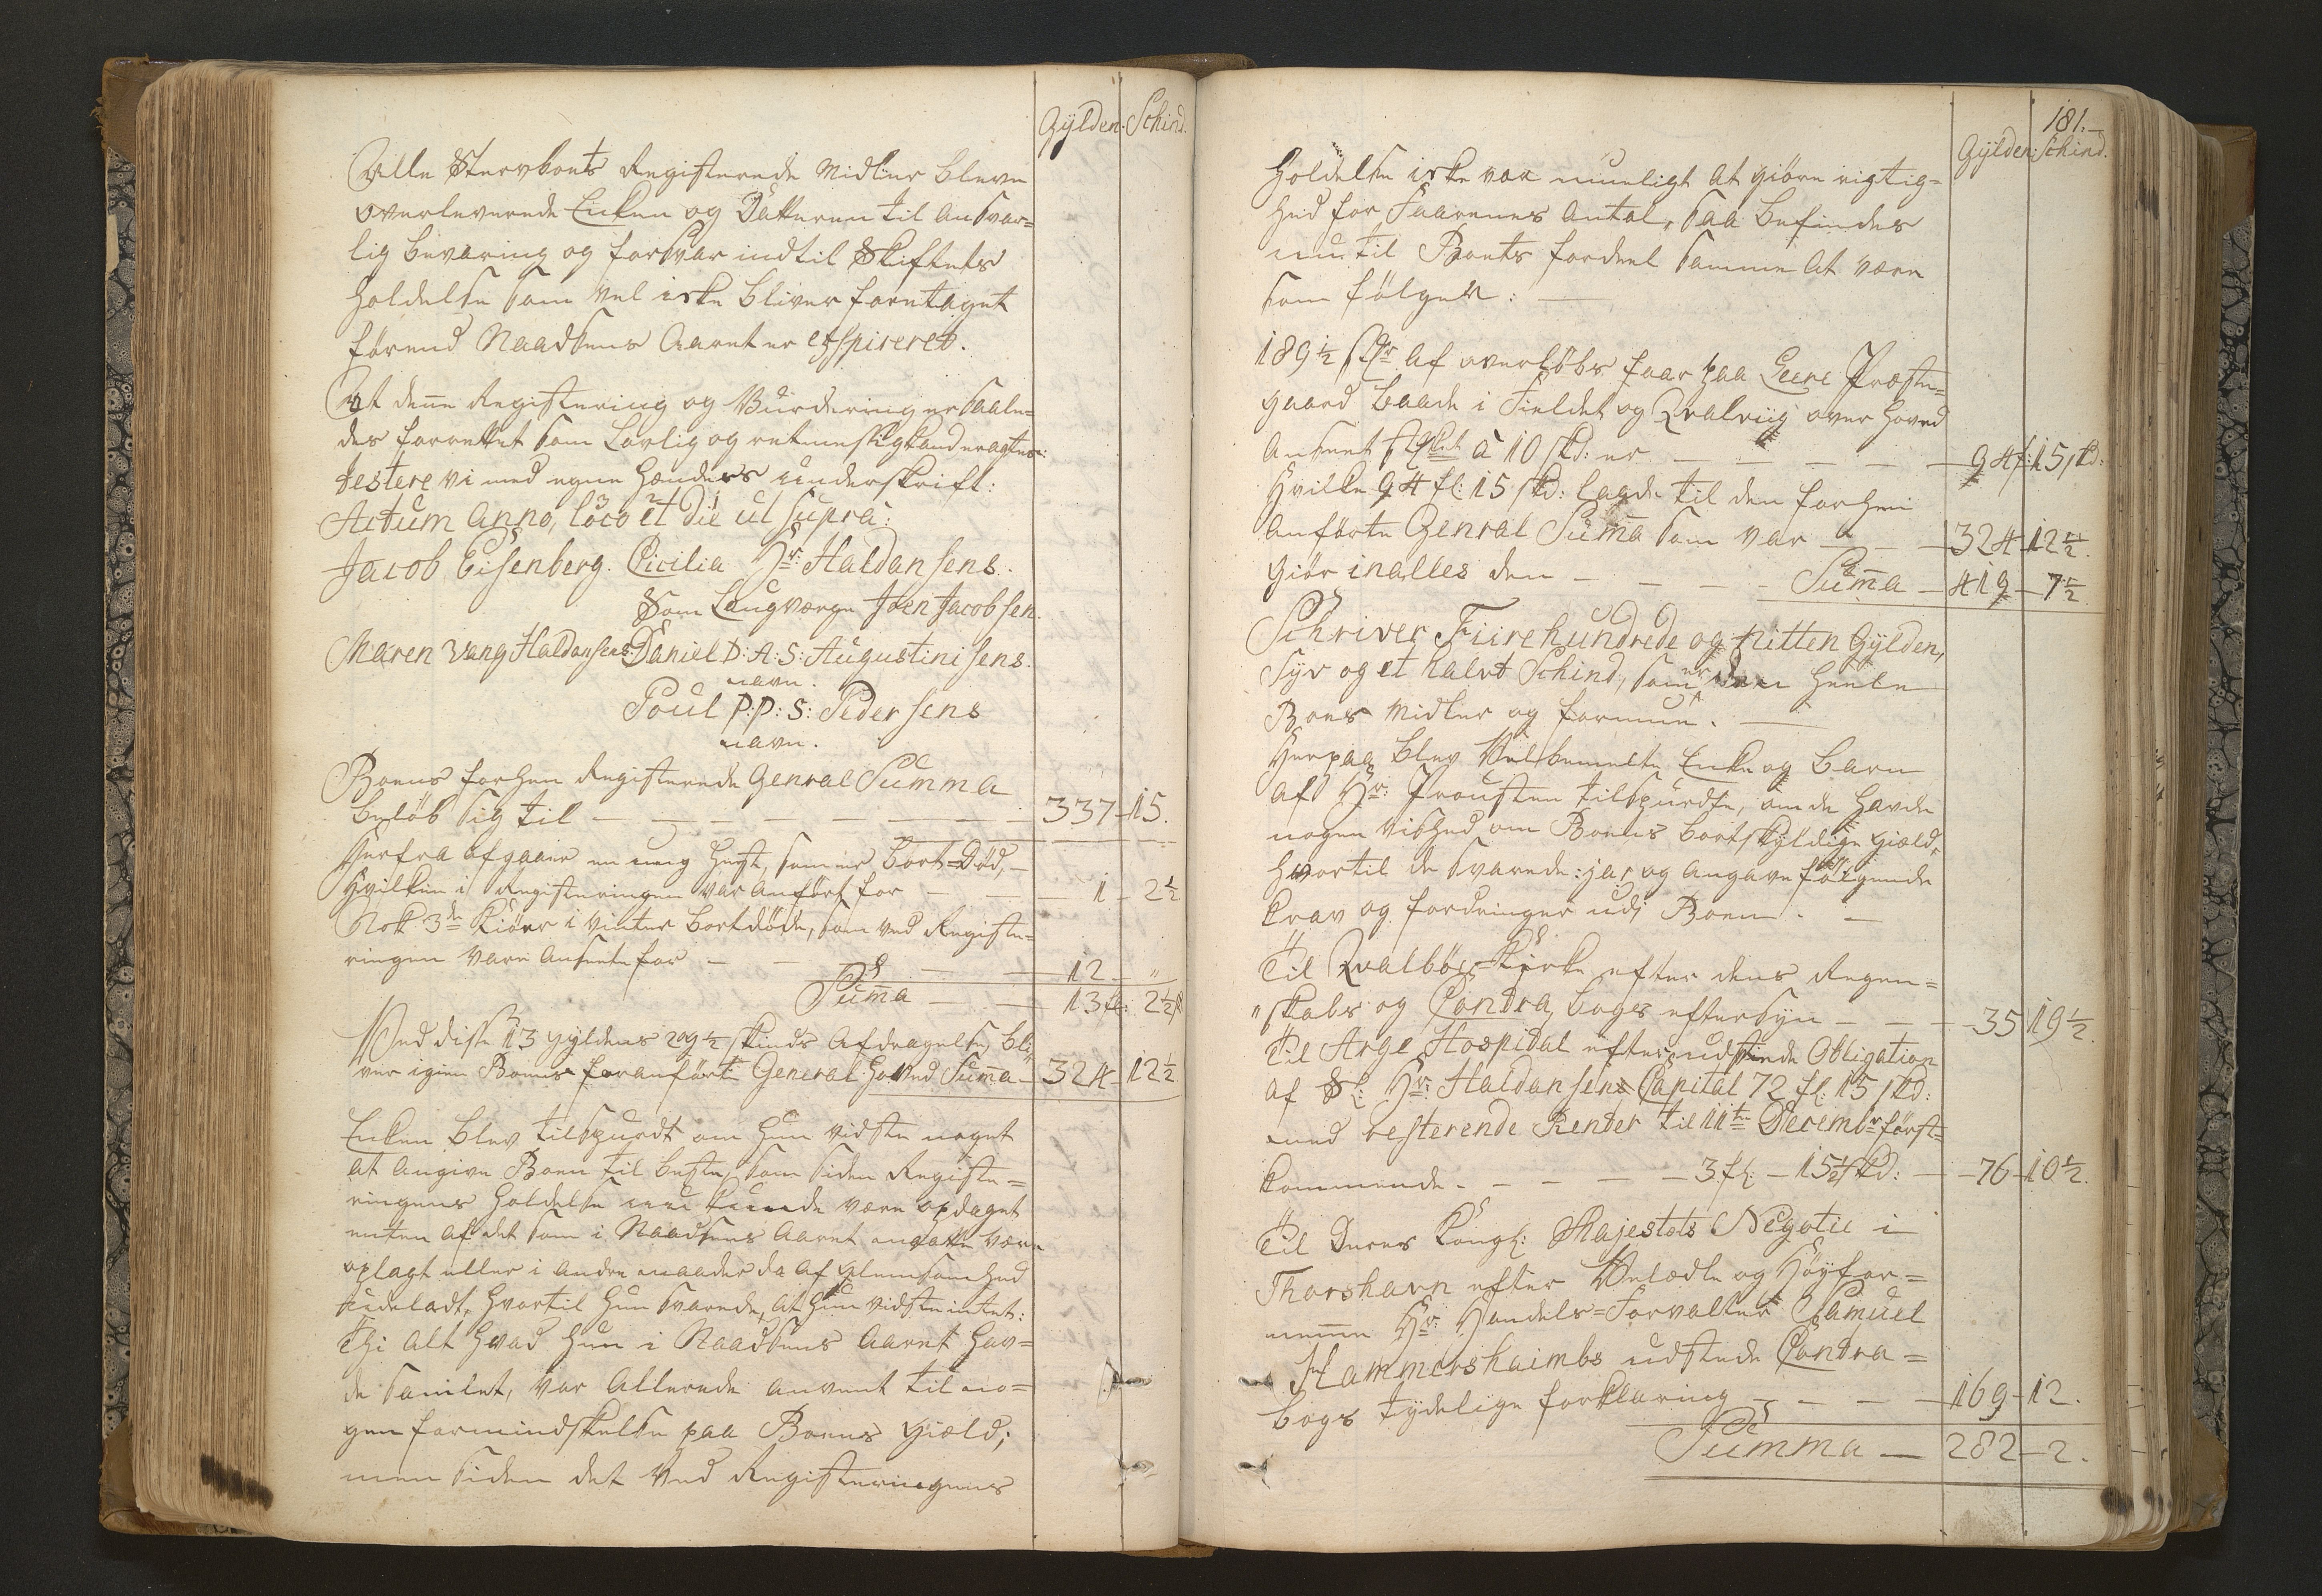 Gÿlden. Schind.
Alle Stervboets Registerede Midler bleve
overleverede Enken og Datteren til ansvar=
lig bevaring og forsvar indtil Skiftets
holdelse som vel icke bliver foretaget
førend Naadsens Aaret er exspireret.
At deñe Registering og Vurdering er saale=
des forrettet som Lovlig og retmessig
testere vi med egne hænders underskrift:
Actum Anno, loco et die ut supra:
Jacob Eisenberg. Cicilia Hr: Haldansens.
Som Laugværge Joen Jacobsen.
Maren Vang Haldansens. Daniel D: A: S: Augustinisens
navn.
Poul P: P: S: Pedersens
navn.
Boens forhen Registerede Genral Summa
beløb sig til — 337 - 15.
Herfra afgaaer en ung Hest, som er bort=død,
hvilken i Registeringen var anført for — 1 - 2½
Nok 3de Kiöer i vinter bortdøde, som ved Registe=
ringen vare ansete for — 12 - "
Sum̃a — 13 fl: 2½
Ved disse 13 gyldens 2 og ½ skinds Afdragelse, bli=
ver igien Boens foranførte General Hoved Sum̃a — 324 - 12½
Enken blev tilspurdt om hun vidste noget
at angive Boen til beste, som siden Registe=
ringens holdelse kunde være opdaget
enten af det som i Naadsens Aaret være
oplagt eller i andre maader da af glemsomhed
udeladt, hvortil hun svarede, at hun vidste intet:
Thi alt hvad hun i Naadsens Aaret hav=
de samlet, var allerede anvent til no=
gen formindskelse paa Boens giæld;
men siden det ved Registeringens
181.
Gÿlden: Schind.
holdelse icke var mueligt at giøre rigtig=
hed for Faarenes Antal, saa befindes
nu til Boets fordeel samme at være
som følger:
189½ af overløbs faar paa Præste=
gaard baade i Fieldet og Qvalviig over hoved
anseet à 10 skd: er — 94 fl: 15 skd:
Hvilke 94 fl: 15 skd: lagde til den forhen
anførte Genral Sum̃a som var — 324 - 12½.
giør i nalles den — Sum̃a — 419 - 7½
Schriver Fiirehundrede og Nitten Gÿlden,
Syv og et halvt Schind, som er den heele
Boes Midler og formue.
Herpaa blev Velbemelte Enke og Barn
af Hr: Prousten tilspurdte, om de havde
nogen vished om Boens bortskyldige giæld,
hvortil de svarede: ja, og angave følgende
krav og fordringer udj Boen.
Til Qvalböe Kirke efter dens Regen=
skabs og Contra bogs eftersyn — 35 - 19½.
Til Arge Hospital efter udstæde Obligation
af Sl: Hr: Haldansens Capital 72 fl: 15 skd:
med resterende Renter til 11te Decembr först=
kommende. — 3 fl: - 15½ skd: — 76 - 10½.
Til Deres Kongl: Majestets Negotie i
Thorshavn efter Velædle og Høyfor=
nemme Hr: Handels=Forvalter Samuel
Hammershaimbs udstede Contra=
bogs tydelige forklaring — 169 - 12.
Summa — 282 - 2.